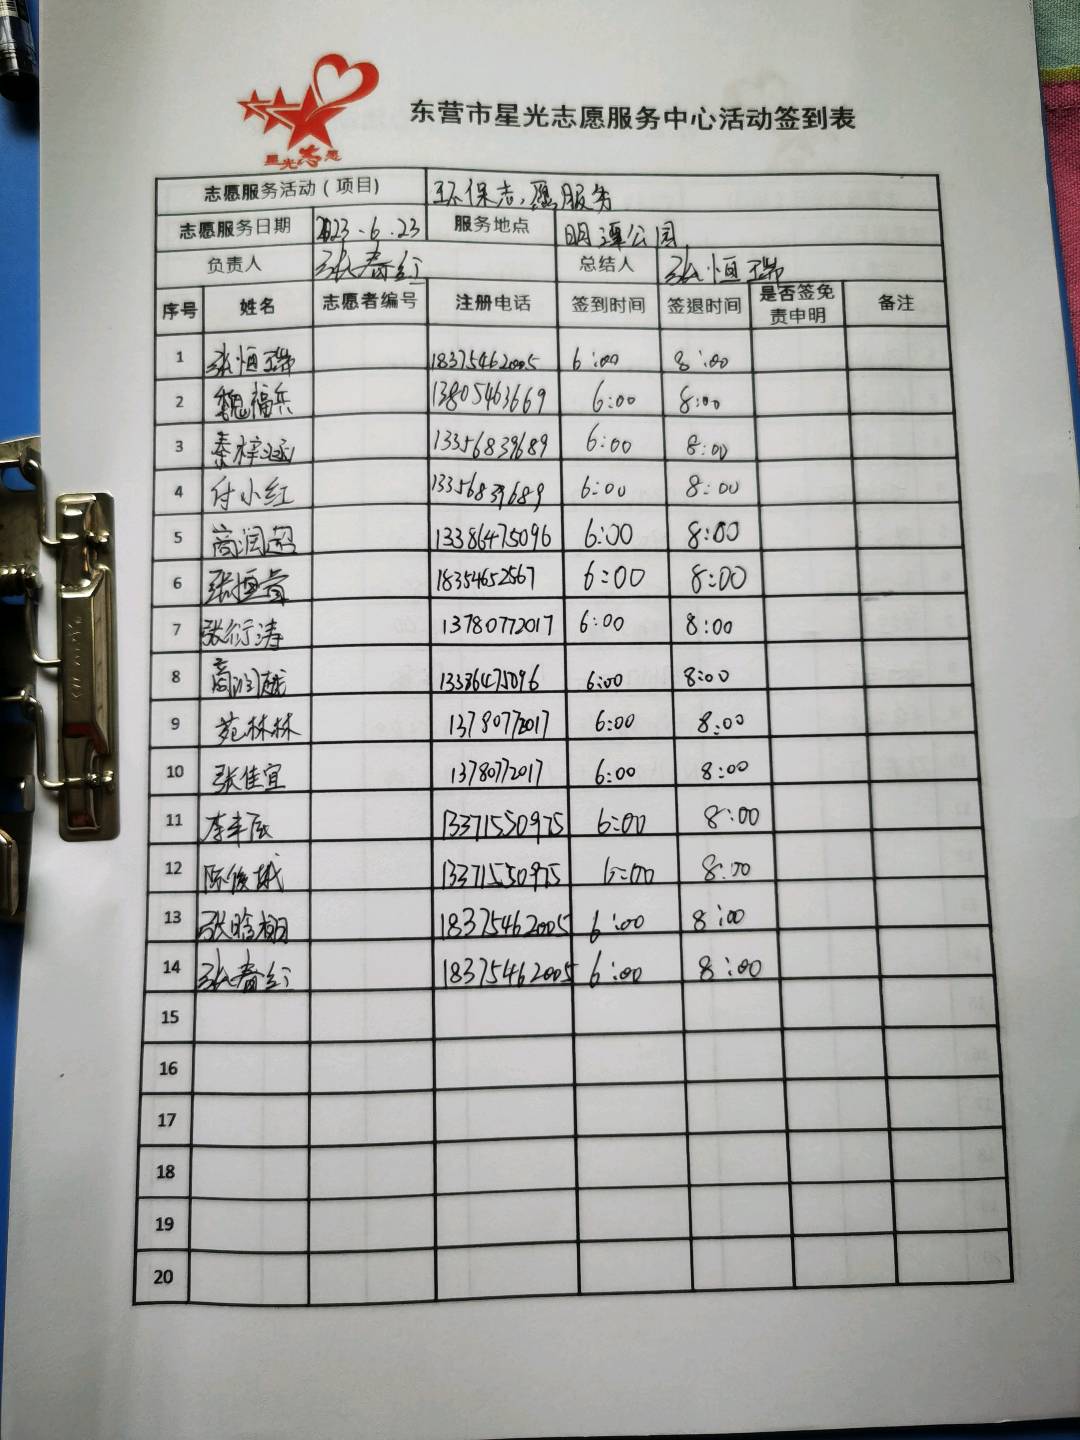 星光志愿
东营市星光志愿服务中心活动签到表
志愿服务活动（项目） 环保志愿服务
志愿服务日期 2023.6.23 服务地点 明潭公园
负责人 张春红 总结人 张恒瑞
序号 姓名 志愿者编号 注册电话 签到时间 签退时间 是否签免责申明 备注
1 张恒瑞 18375462005 6:00 8:00
2 魏福兵 13805463669 6:00 8:00
3 秦梓涵 13356839689 6:00 8:00
4 付小红 13356839689 6:00 8:00
5 商润超 13386475096 6:00 8:00
6 张恒 18354652567 6:00 8:00
7 张衍涛 13780772017 6:00 8:00
8 商润越 13386475096 6:00 8:00
9 苑林林 13780772017 6:00 8:00
10 张佳宜 13780772017 6:00 8:00
11 李丰辰 13371550975 6:00 8:00
12 陈俊斌 13371550975 6:00 8:00
13 张晗栩 18375462005 6:00 8:00
14 张春红 18375462005 6:00 8:00
15
16
17
18
19
20